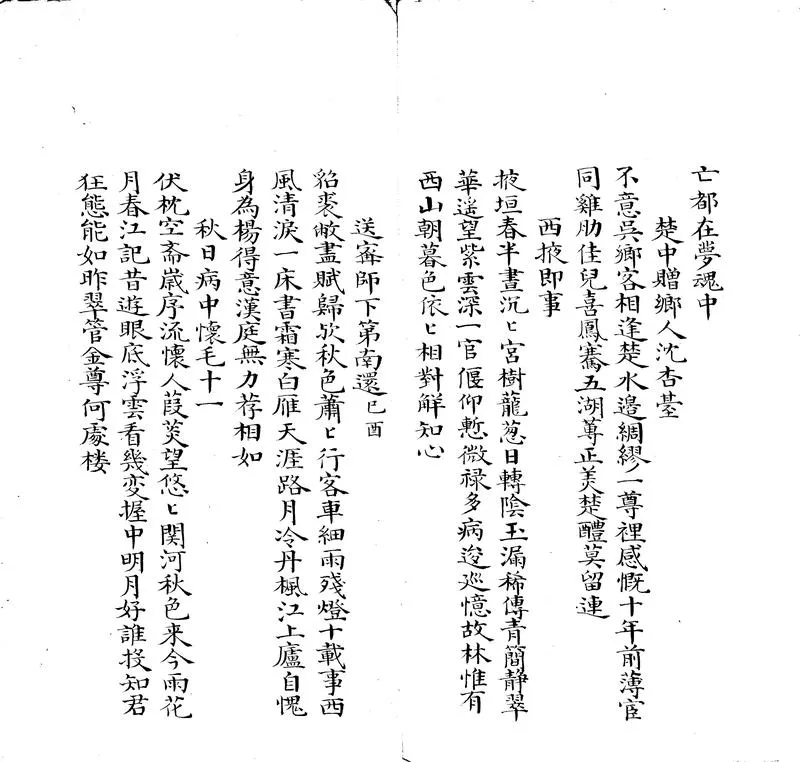 亡都在夢魂中
楚中贈鄉人沈杏臺
不意吳鄉客相逢楚水邊綢繆一尊裡感慨十年前薄宦
同雞肋佳兒喜鳳騫五湖蓴正美楚醴莫留連
西掖即事
掖垣春半晝沉〻宮樹蘢葱日轉陰玉漏稀傳青簡靜翠
華遥望紫雲深一官偃仰慙微禄多病逡巡憶故林惟有
西山朝暮色依〻相對解知心
送甯師下第南還己酉
貂裘敝盡賦歸欤秋色蕭〻行客車細雨殘燈十載事西
風清淚一床書霜寒白雁天涯路月冷丹楓江上廬自愧
身為楊得意漢庭無力荐相如
秋日病中懷毛十一
伏枕空齋歲序流懷人葭菼望悠〻関河秋色来今雨花
月春江記昔遊眼底浮雲看幾變握中明月好誰投知君
狂態能如昨翠管金尊何處楼